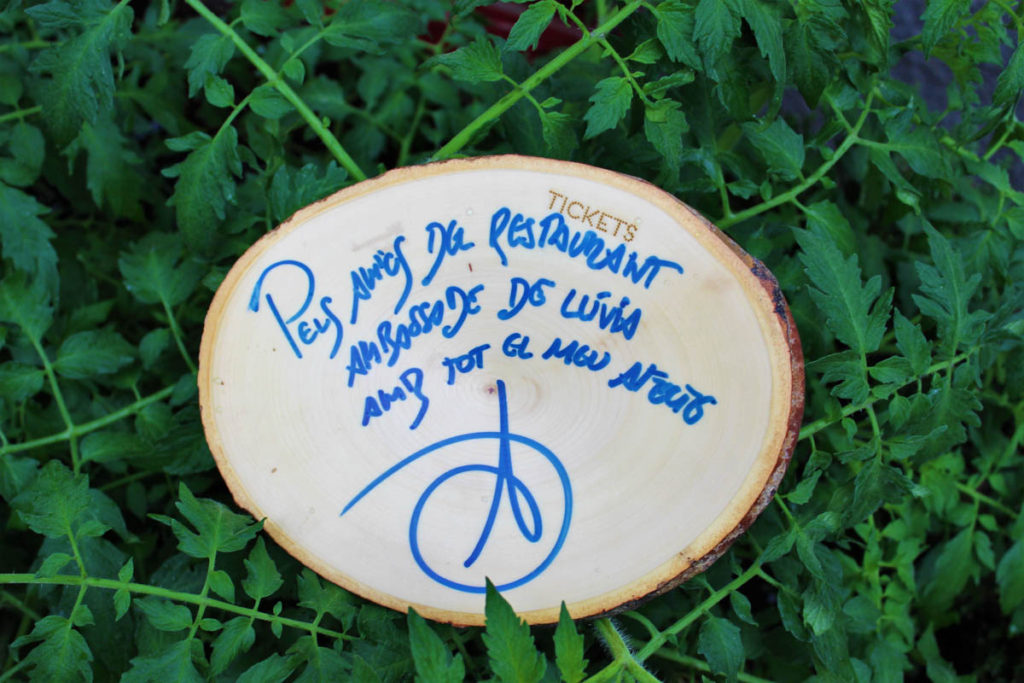 TICKETS
PELS AMICS DEL RESTAURANT
AMBOSSODE DE LLÍVIA
AMB TOT EL MEU AFECTE